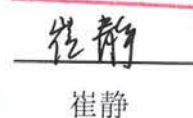 崔静
崔静